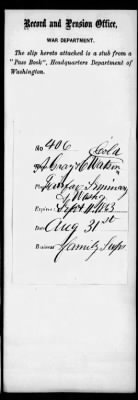 Record and Pension Office,
WAR DEPARTMENT.
The slip hereto attached is a stub from a
"Pass Book", Headquarters Department of
Washington.
No 406 Cold
A Gray & Watson
Fairfax Seminary
& Wash
Expires Sept 4 1863
Day Aug 31st
Business Family Supp